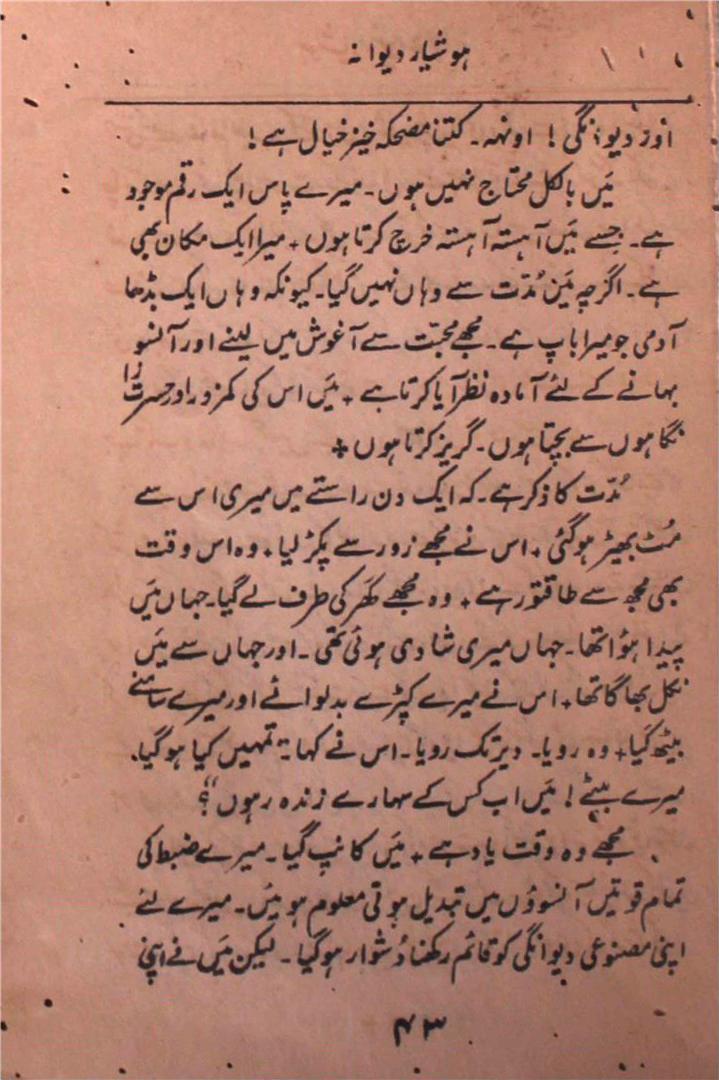 ہوشیار دیوانہ
اور دیوانگی! اونہہ۔ کتنا مضحکہ خیز خیال ہے!
مَیں بالکل محتاج نہیں ہوں۔ میرے پاس ایک رقم موجود
ہے۔ جسے مَیں آہستہ آہستہ خرچ کرتا ہوں + میرا ایک مکان بھی
ہے۔ اگرچہ مَیں مُدّت سے وہاں نہیں گیا۔ کیونکہ وہاں ایک بڈھا
آدمی جو میرا باپ ہے۔ مجھے محبّت سے آغوش میں لینے اور آنسو
بہانے کے لئے آمادہ نظر آیا کرتا ہے + مَیں اس کی کمزور اور حسرت زا
نگاہوں سے بچتا ہوں۔ گریز کرتا ہوں +
مُدّت کا ذکر ہے۔ کہ ایک دن راستے میں میری اس سے
مُٹ بھیڑ ہوگئی + اس نے مجھے زور سے پکڑ لیا + وہ اس وقت
بھی مجھ سے طاقتور ہے + وہ مجھے گھر کی طرف لے گیا۔ جہاں مَیں
پیدا ہؤا تھا۔ جہاں میری شادی ہوئی تھی۔ اور جہاں سے مَیں
نکل بھاگا تھا + اس نے میرے کپڑے بدلوائے اور میرے سامنے
بیٹھ گیا + وہ رویا۔ دیر تک رویا۔ اس نے کہا "تمہیں کیا ہوگیا۔
میرے بیٹے! مَیں اب کس کے سہارے زندہ رہوں"؟
مجھے وہ وقت یاد ہے + مَیں کانپ گیا۔ میرے ضبط کی
تمام قوتیں آنسوؤں میں تبدیل ہوتی معلوم ہوئیں۔ میرے لئے
اپنی مصنوعی دیوانگی کو قائم رکھنا دُشوار ہوگیا۔ لیکن مَیں نے اپنی
۴۳